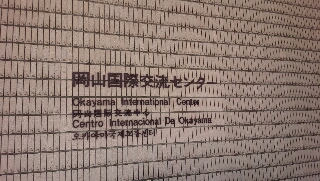 岡山国際交流センター
Okayama International Center
冈山国际交流中心
Centro Internacional De Okayama
오카야마국제교류센터